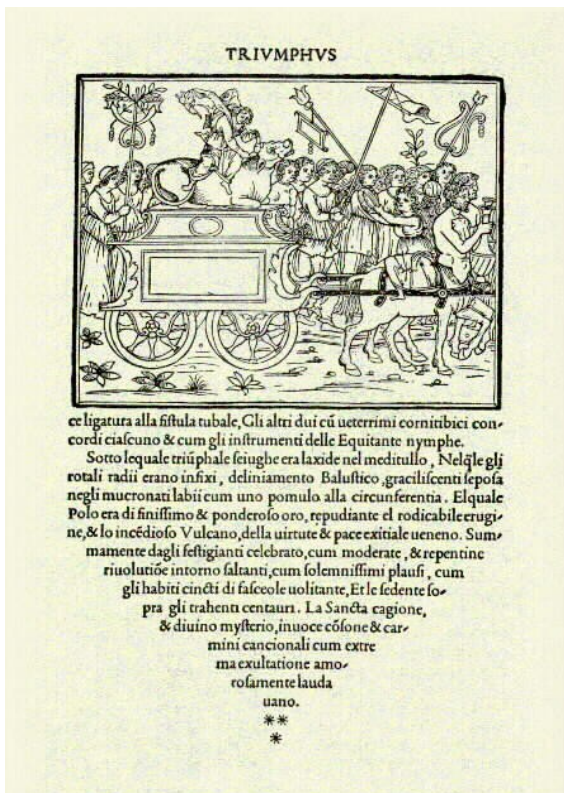 TRIVMPHVS
ce ligatura alla fiſtula tubale,Gli altri dui cū ueterrimi cornitibici con-
cordi ciaſcuno & cum gli inſtrumenti delle Equitante nymphe.
Sotto lequale triūphale ſeiughe era laxide nel meditullo, Nelq̄le gli
rotali radii erano infixi, deliniamento Baluſtico,graciliſcenti ſepoſa
negli mucronati labii cum uno pomulo alla circunferentia. Elquale
Polo era di finiſſimo & ponderoſo oro, repudiante el rodicabile erugi-
ne,& lo incēdioſo Vulcano,della uirtute & pace exitiale ueneno. Sum-
mamente dagli feſtigianti celebrato,cum moderate, & repentine
riuolutiōe intorno ſaltanti,cum ſolemniſſimi plauſi, cum
gli habiti cincti di faſceole uolitante,Et le ſedente ſo-
pra gli trahenti centauri. La Sancta cagione,
& diuino myſterio,inuoce cōſone & car-
mini cancionali cum extre
ma exultatione amo-
roſamente lauda
uano.
**
*